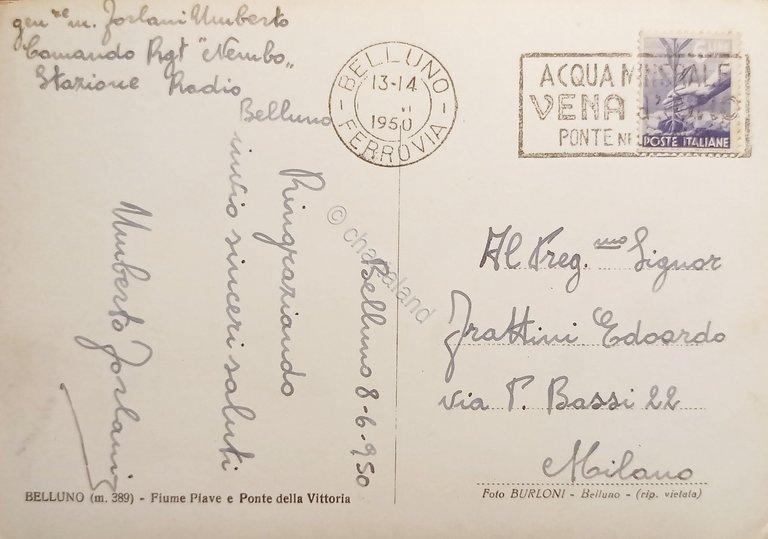 gen.re m. Forlani Umberto
Comando Rgt "Nembo"
Stazione Radio
Belluno
BELLUNO
13-14
VI
1950
FERROVIA
ACQUA MINERALE
VENA D'ORO
PONTE NE
POSTE ITALIANE
Belluno 8-6-950
Ringraziando
invio sinceri saluti
Umberto Forlani
Al Preg.mo Signor
Frattini Edoardo
via P. Bassi 22
Milano
BELLUNO (m. 389) - Fiume Piave e Ponte della Vittoria
Foto BURLONI - Belluno - (rip. vietata)
© chartaland